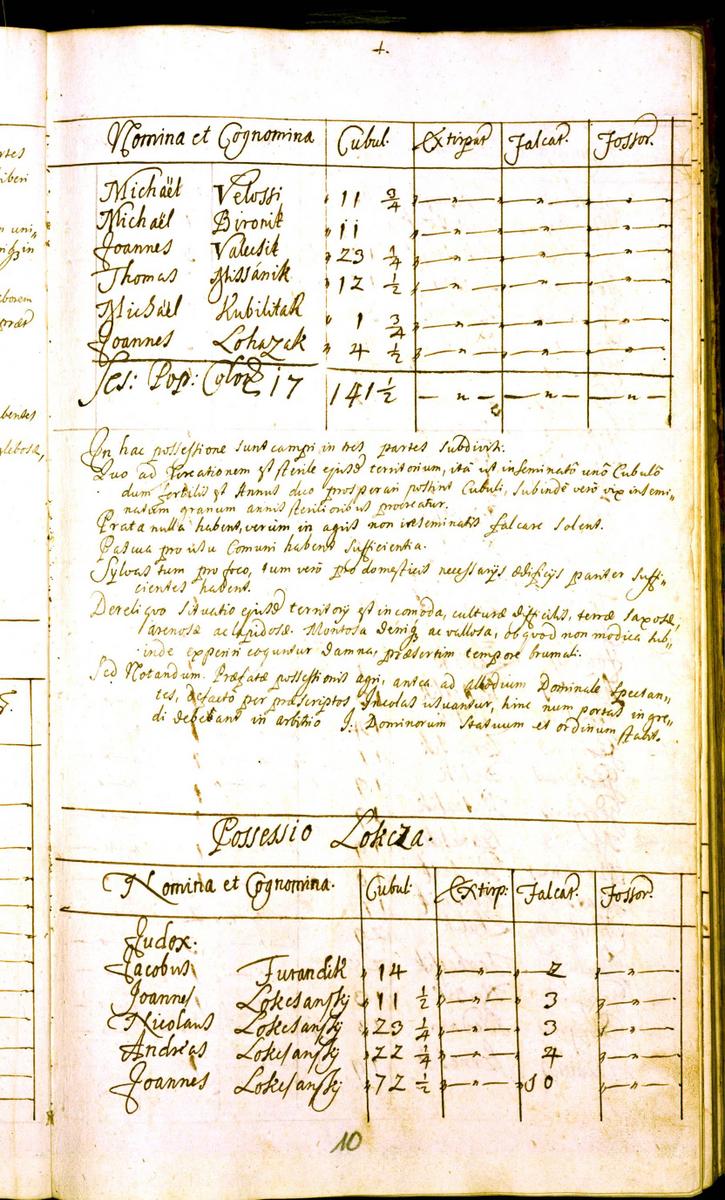 Nomina et Cognomina Cubul. Extirpat. Falcat. Fossor.
Michaël Velossi " 11 3/4 " — " — " — " — " — "
Michaël Bironik " 11 " — " — " — " — " — "
Joannes Valusik " 23 1/4 " — " — " — " — " — "
Thomas Missanik " 12 1/2 " — " — " — " — " — "
Michaël Kubilitak " 1 3/4 " — " — " — " — " — "
Joannes Lohazak " 4 1/2 " — " — " — " — " — "
Ses: Pop: Colon 17 141 1/2 — " — — " — — " —
In hac possessione sunt campi in tres partes subdivisi.
Quo ad procreationem est sterile ejusd territorium, ita ut inseminato uno Cubulo
dum fertilis est Annus duo prosperari possint Cubuli, subinde vero vix insemi„
natum granum annis sterilioribus procreatur.
Prata nulla habent, verum in agris non inseminatis falcare solent.
Pascua pro usu Comuni habent sufficientia.
Sylvas tum pro foco, tum vero pro domesticis necessarijs ædificijs pariter suffi„
cientes habent.
De reliquo situatio ejusd territorij est incomoda, culturæ difficilis, terræ saxosæ,
arenosæ ac lapidosæ. Montosa deniq ac vallosa, ob quod non modica sub„
inde experiri coguntur damna, præsertim tempore brumali.
Sed Notandum. Præfatæ possessionis agri, antea ad allodium Dominale spectan„
tes, defacto per præscriptos Incolas usuantur, hinc num portas ingre„
di debeant in arbitrio I: Dominorum Statuum et ordinum stabit.
Possessio Lokcza.
Nomina et Cognomina. Cubul. Extirp: Falcat. Fossor.
Judex:
Jacobus Furandik " 14 " — " — " 2 " — " —
Joannes Lokcsansky " 11 1/2 " — " — " 3 " — " —
Nicolaus Lokcsansky " 23 1/4 " — " — " 3 " — " —
Andreas Lokcsansky " 22 1/4 " — " — " 4 " — " —
Joannes Lokcsansky " 72 1/2 " — " — " 10 " — " —
10